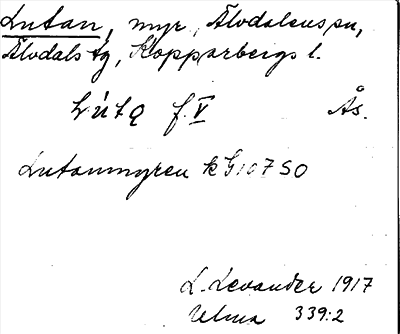 Lutan, myr, Älvdalens sn,
Älvdals tg, Kopparbergs l.
Lútą f. V Ås.
Lutanmyren k G107 SO
L. Levander 1917
Ulma 339:2